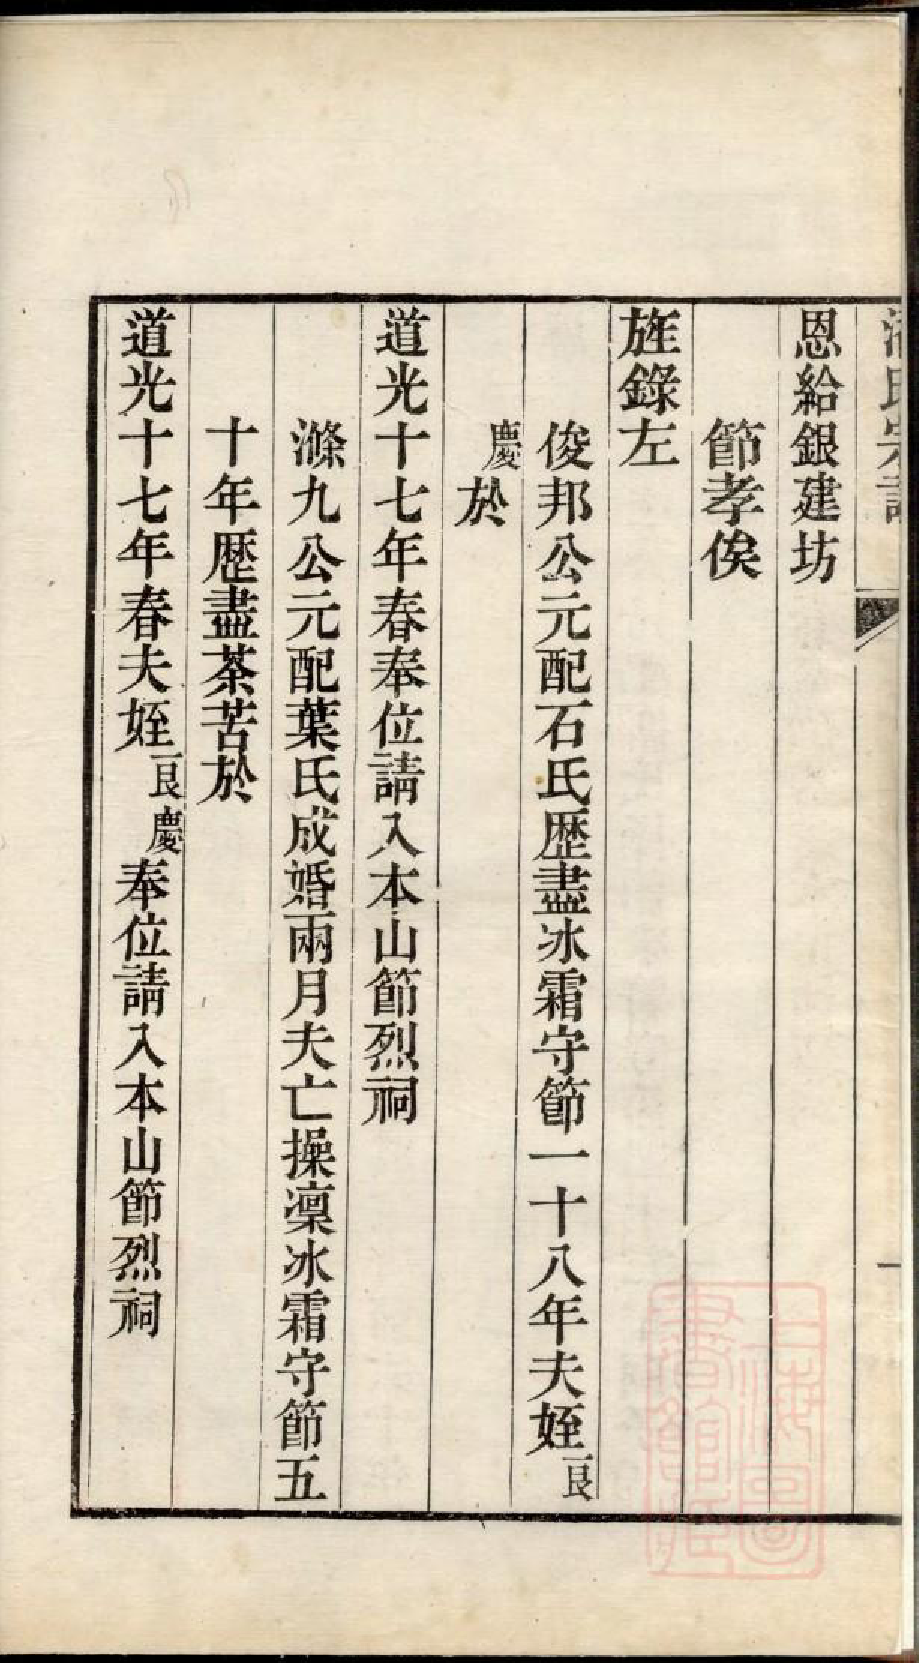 恩給銀建坊
節孝俟
旌錄左
俊邦公元配石氏歴盡冰霜守節一十八年夫姪良
慶於
道光十七年春奉位請入本山節烈祠
滌九公元配葉氏成婚兩月夫亡操凜冰霜守節五
十年歴盡荼苦於
道光十七年春夫姪良慶奉位請入本山節烈祠
上海圖書館藏